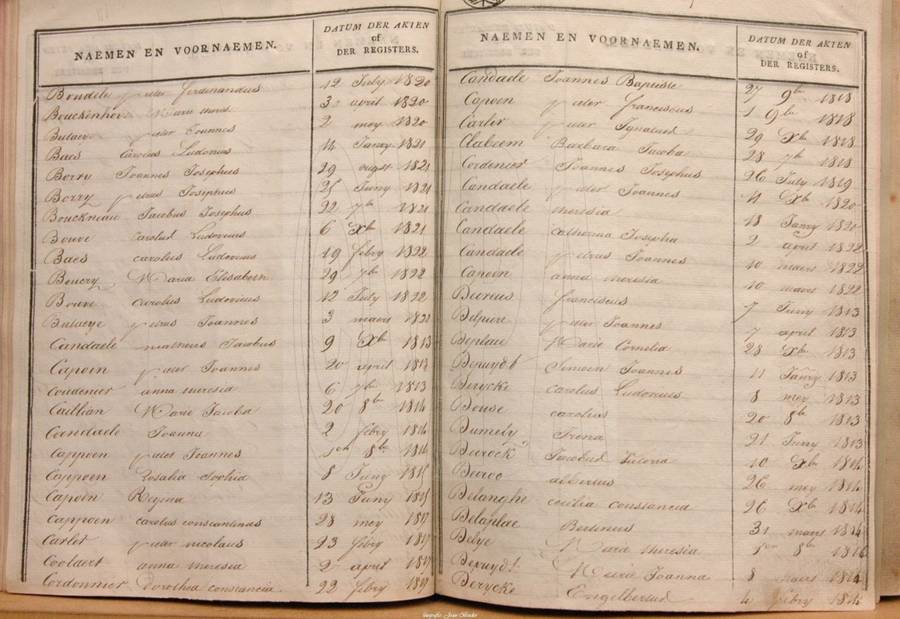 NAEMEN EN VOORNAEMEN.
DATUM DER AKTEN
of
DER REGISTERS.
Bondele pieter Ferdinandus 12 July 1820
Bouckenhove Marie 3 april 1820
Butaeye pieter Joannes 2 mey 1820
Baes Carolus Ludovius 14 1821
Borry Joannes Josephus 29 august 1821
Borry petrus Josephus 25 Juny 1821
Bouckneau Jacobus Josephus 22 7b 1821
Bouve carolus Ludovius 6 Xb 1821
Baes carolus Ludovius 19 febry 1822
Boucry Maria Elisabeth 29 7b 1822
Bouve Carolus Ludovius 12 July 1822
Butaeye petrus Joannes 3 mars 1822
Candaele matheus Jacobus 9 Xb 1813
Capoen pieter Joannes 20 april 1813
Cordenier anna theresia 6 7b 1813
Caillian Marie Jacoba 20 8b 1814
Candaele Joanna 2 febry 1814
Cappoen pieter Joannes 8b 1814
Cappoen Rosalia Sophia 8 Juny 1815
Capoen Regina 13 Juny 1815
Cappoen carolus constantinus 28 mey 1817
Carlet pieter nicolaus 23 febry 1817
Coolaert anna theresia 2 april 1817
Cordonnier Dorothea constancia 22 febry 1817
NAEMEN EN VOORNAEMEN.
DATUM DER AKTEN
of
DER REGISTERS.
Candaele Joannes Baptiste 27 9b 1818
Capoen pieter Franciscus 1 9b 1818
Carlet pieter Ignatius 29 Xb 1818
Barbara Jacoba 28 7b 1818
Cordenier Joannes Josephus 26 July 1819
Candaele pieter Joannes 4 Xb 1820
Candaele theresia 18 1820
Candaele catharina Josepha 2 april 1822
Candaele petrus Joannes 10 mars 1822
Capoen anna theresia 10 mars 1822
Franciscus 7 Juny 1813
Delpure pieter Joannes 7 april 1813
Deplae Marie Cornelia 28 Xb 1813
Simoen Joannes 11 1813
Derycke carolus Ludovius 8 mey 1813
Douse carolus 20 8b 1813
Dumely 21 Juny 1813
Deerock Jacobus 10 Xb 1814
albertus 26 mey 1814
Delanghe cecilia constancia 26 Xb 1814
Delaplae Bertinus 31 mars 1814
Delye Maria theresia 8b 1816
Marie Joanna 8 mars 1814
Derycke Engelbertus 4 febry 1814